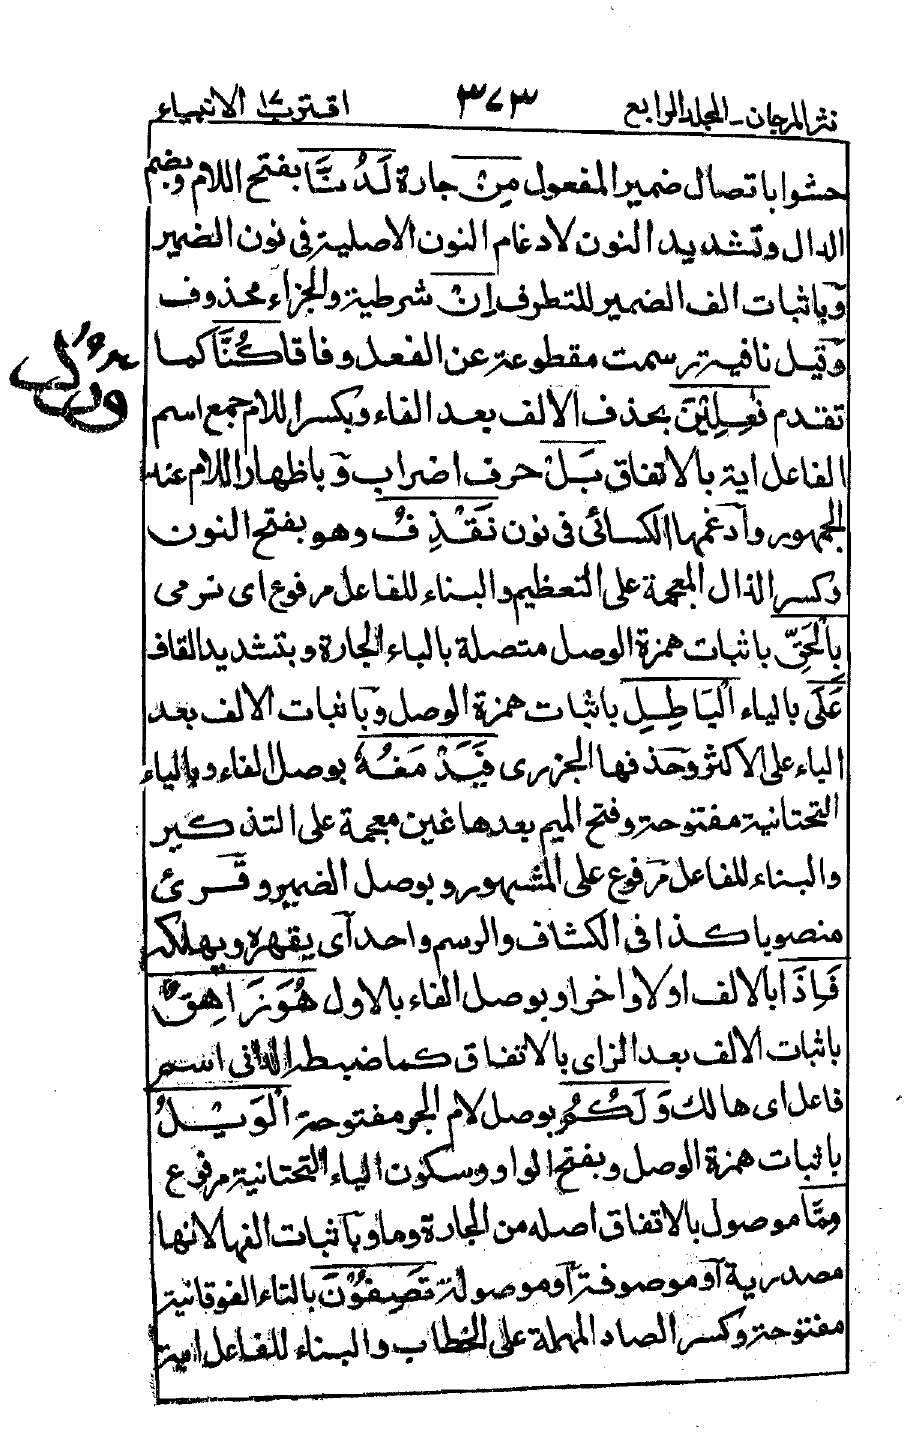 نثر المرجان ـ المجلد الرابع ٣٧٣ اقترب ١٧ الانبياء
حشوا باتصال ضمير المفعول مِنْ جارة لَدُنَّا بفتح اللام وبضم
الدال وتشديد النون لادغام النون الاصلية فى نون الضمير
وباثبات الف الضمير للتطرف اِنْ شرطية والجزاء محذوف
وقيل نافية رسمت مقطوعة عن الفعل وفاقا كُنَّا كما
تقدم فٰعِلِيْنَ بحذف الالف بعد الفاء وبكسر اللام جمع اسم
الفاعل اية بالاتفاق بَلْ حرف اضراب وباظهار اللام عند
الجمهور وادغمها الكسائى فى نون نَقْذِفُ وهو بفتح النون
وكسر الذال المعجمة على التعظيم والبناء للفاعل مرفوع اى نرمى
بِالْحَقِّ باثبات همزة الوصل متصلة بالباء الجارة وبتشديد القاف
عَلَى بالياء الْبَاطِلِ باثبات همزة الوصل وباثبات الالف بعد
الباء على الاكثر وحذفها الجزرى فَيَدْمَغُهُ بوصل الفاء وبالياء
التحتانية مفتوحة وفتح الميم بعدها غين معجمة على التذكير
والبناء للفاعل مرفوع على المشهور وبوصل الضمير وقرئ
منصوبا كذا فى الكشاف والرسم واحد اى يقهره ويهلكه
فَاِذَا بالالف اولا واخرا وبوصل الفاء بالاول هُوَ زَاهِقٌ
باثبات الالف بعد الزاى بالاتفاق كما ضبطه الدانى اسم
فاعل اى هالك وَلَكُمُ بوصل لام الجر مفتوحة الْوَيْلُ
باثبات همزة الوصل وبفتح الواو وسكون الياء التحتانية مرفوع
مِمَّا موصول بالاتفاق اصله من الجارة وما وباثبات الفها لانها
مصدرية او موصوفة او موصولة تَصِفُوْنَ بالتاء الفوقانية
مفتوحة وكسر الصاد المهملة على الخطاب والبناء للفاعل اية